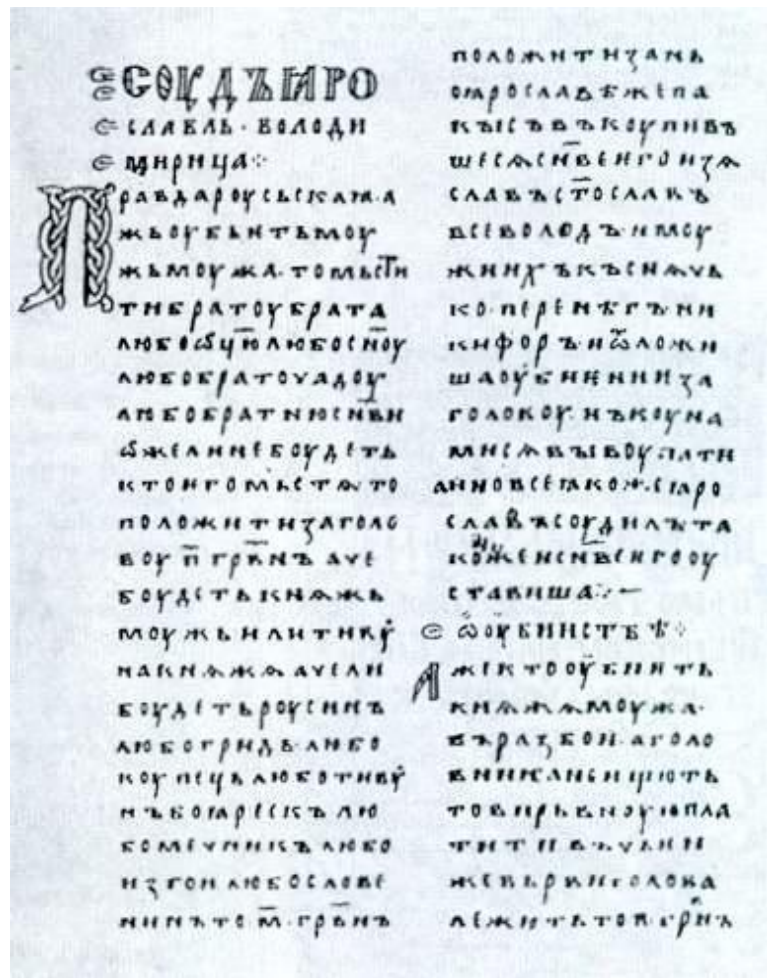 СОУДЪ ꙖРО
СЛАВЛЬ · ВОЛОДИ
МИРИЦА ⁘
Правдароусьскаꙗ · а
жьоубьѥтьмоу
жьмоужа · томьсти
тибратоубрата
любоѡц҃юлюбосн҃оу
любобратоучадоу
любобратнюсн҃ви
ѡжелиннебоудеть
ктоѥгомьстѧто
положитизаголо
воу п҃ грвн҃ъ аче
боудетькнѧжь
моужьилитиву
накнѧжѧ ачели
боудетьроусинъ
любогридь любо
коупецьлюботиву
нъбоꙗрескълю
бомечникълюбо
изгоилюбослове
нинъто м҃ · грвн҃ъ
положитизань
поꙗрославѣжепа
кысъвъкоупивъ
шесѧсн҃веѥгоизѧ
славъст҃ославъ
всеволодъ · имоу
жиихъкъснѧчь
ко · перенѣгъ · ни
кифоръ · иѿложи
шаоубиѥниѥза
головоу · нъкоуна
мисѧвыкоупати
аиновсеꙗкож · еꙗро
славъсоудилъта
коженсн҃веѥгооу
ставиша ⁘
ѡоубииствѣ ⁘
Ажектооубиить
кнѧжѧмоужа ·
въразбои · аголо
вникаинеищють
товирьвноуюпла
тити въчьѥи
жевьрвиголова
лежитьтоп · грвн҃ъ